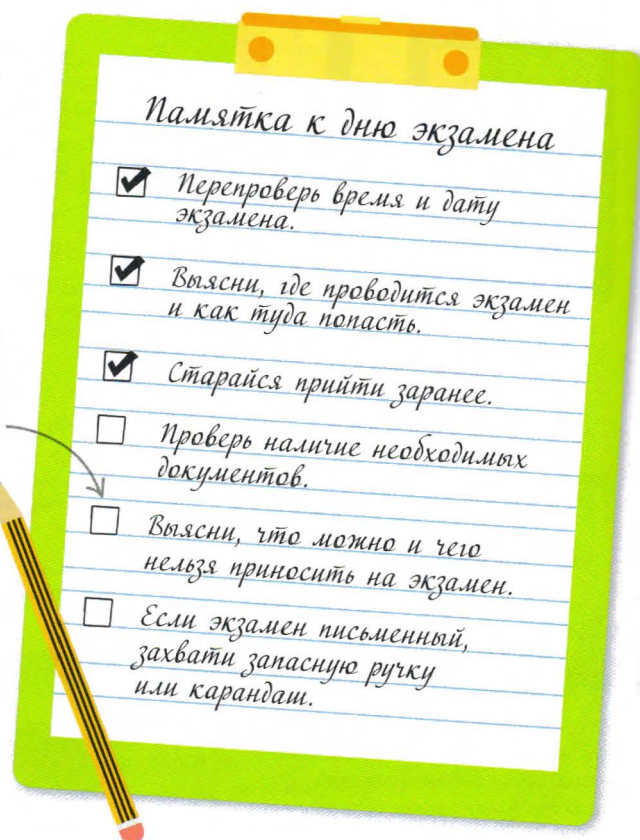 Памятка к дню экзамена
Перепроверь время и дату
экзамена.
Выясни, где проводится экзамен
и как туда попасть.
Старайся прийти заранее.
Проверь наличие необходимых
документов.
Выясни, что можно и чего
нельзя приносить на экзамен.
Если экзамен письменный,
захвати запасную ручку
или карандаш.